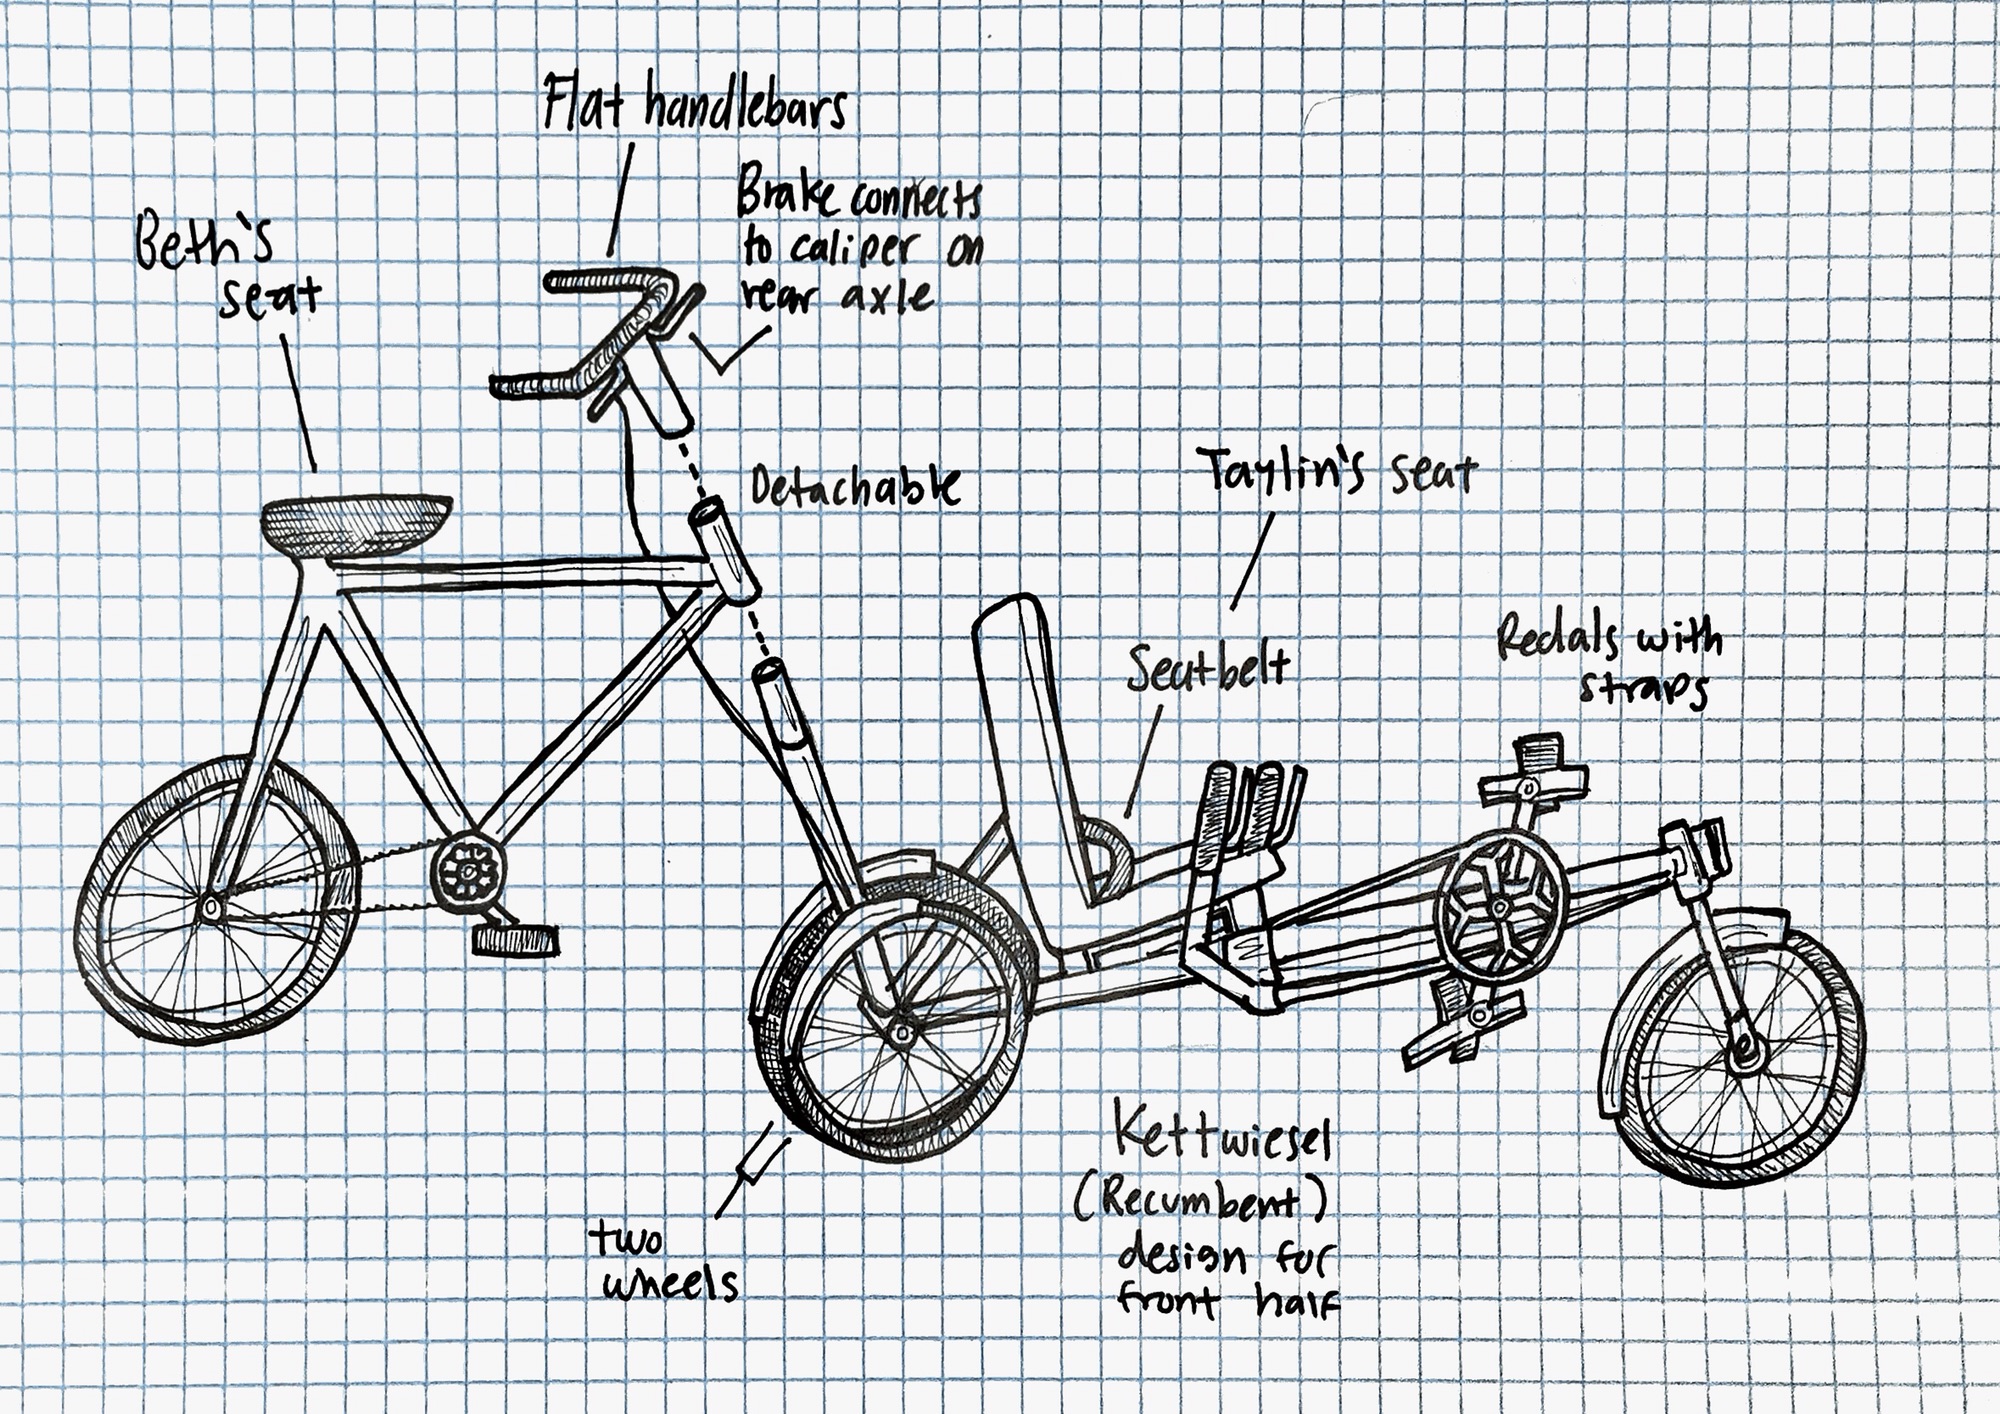 Flat handlebars
Brake connects
to caliper on
rear axle
Beth's
seat
Detachable
Taylin's seat
Seatbelt
Pedals with
straps
two
wheels
Kettwiesel
(Recumbent)
design for
front half